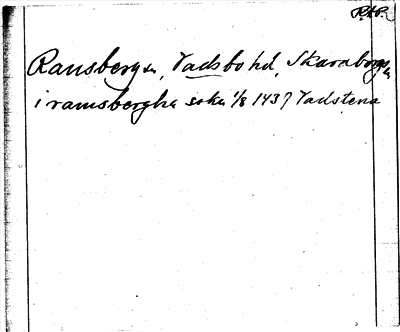 RAP.
Ransbergs sn, Vadsbo hd, Skaraborgs
i ramsbergha sokn 1/8 1437 Vadstena